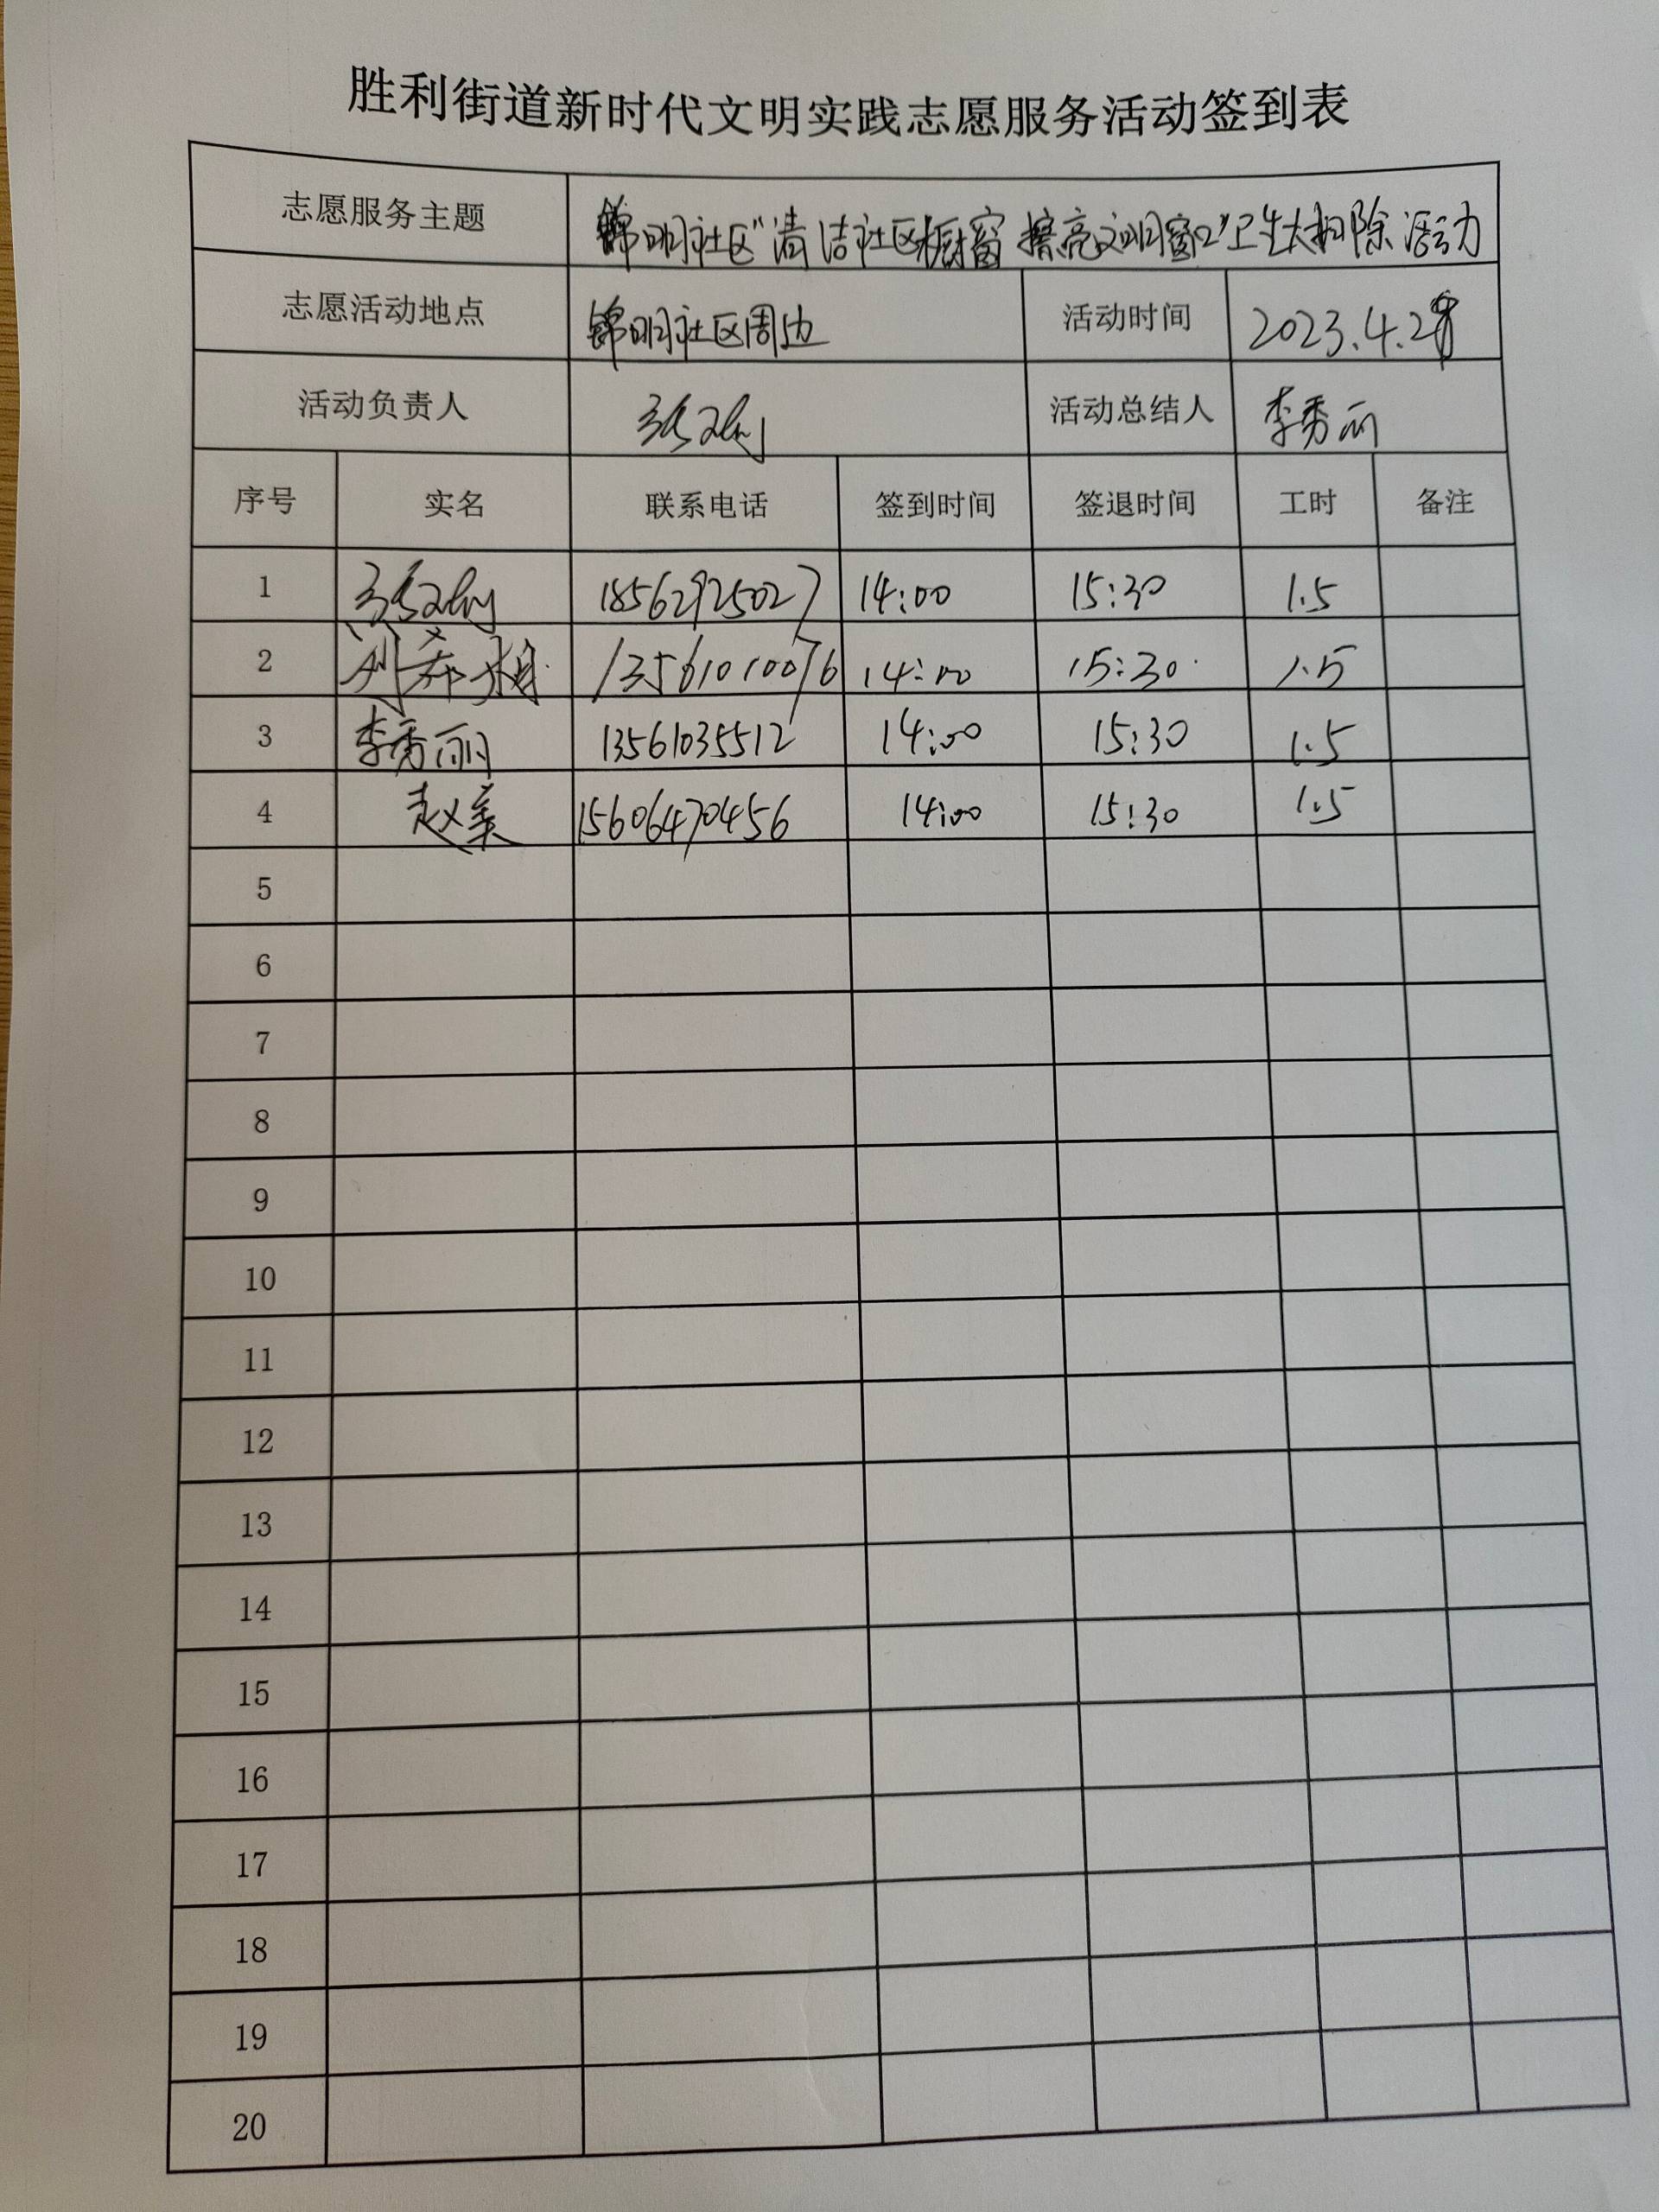 胜利街道新时代文明实践志愿服务活动签到表
志愿服务主题 锦明社区"清洁社区橱窗 擦亮文明窗口"卫生大扫除活动
志愿活动地点 锦明社区周边 活动时间 2023.4.2
活动负责人 活动总结人 李秀丽
序号 实名 联系电话 签到时间 签退时间 工时 备注
1 18562925027 14:00 15:30 1.5
2 刘 13561010076 14:00 15:30 1.5
3 李秀丽 13561035512 14:00 15:30 1.5
4 赵美 15606470456 14:00 15:30 1.5
5
6
7
8
9
10
11
12
13
14
15
16
17
18
19
20